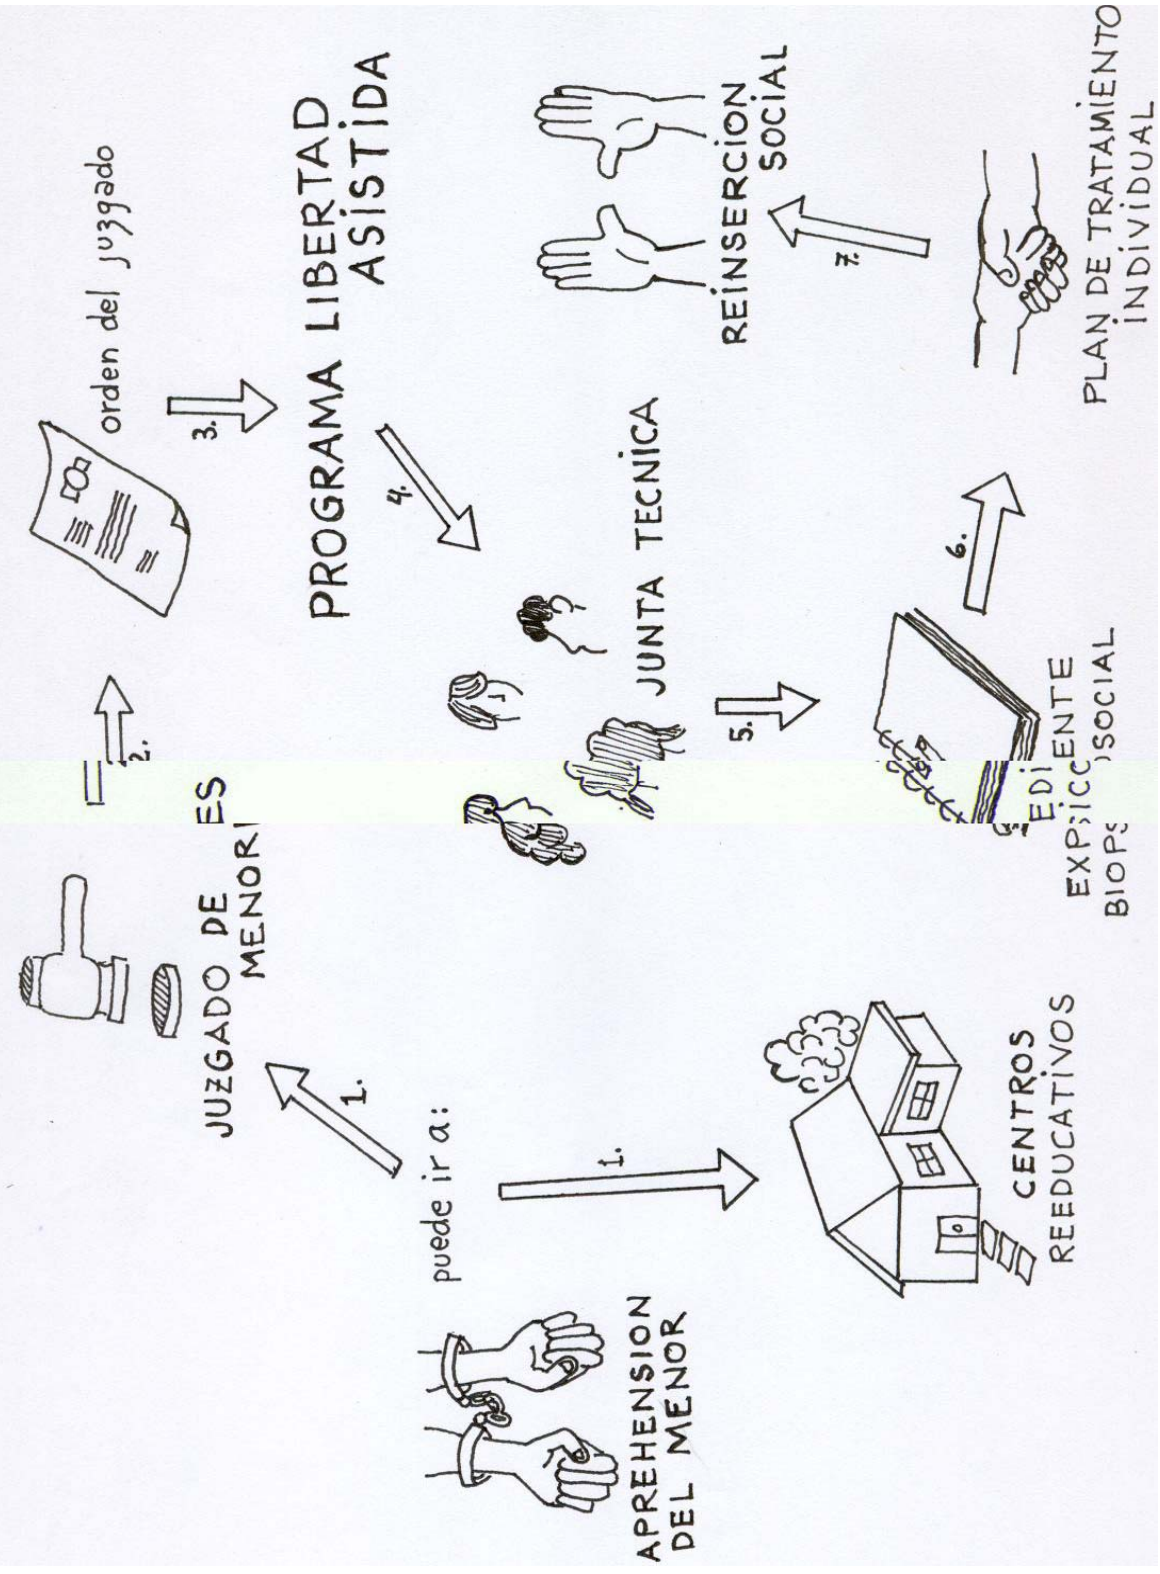 APREHENSION
DEL MENOR
puede ir a:
1.
JUZGADO DE
MENORES
1.
CENTROS
REEDUCATIVOS
2.
orden del juzgado
3.
PROGRAMA LIBERTAD
ASISTIDA
4.
JUNTA TECNICA
5.
EXPEDIENTE
BIOPSICOSOCIAL
6.
PLAN DE TRATAMIENTO
INDIVIDUAL
7.
REINSERCION
SOCIAL